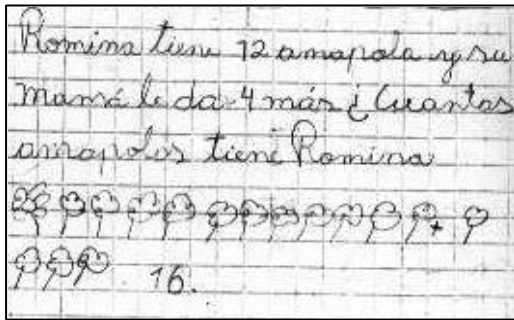 Romina tiene 12 amapola y su
mamá le da 4 más ¿ Cuantas
amapolas tiene Romina
+
16.